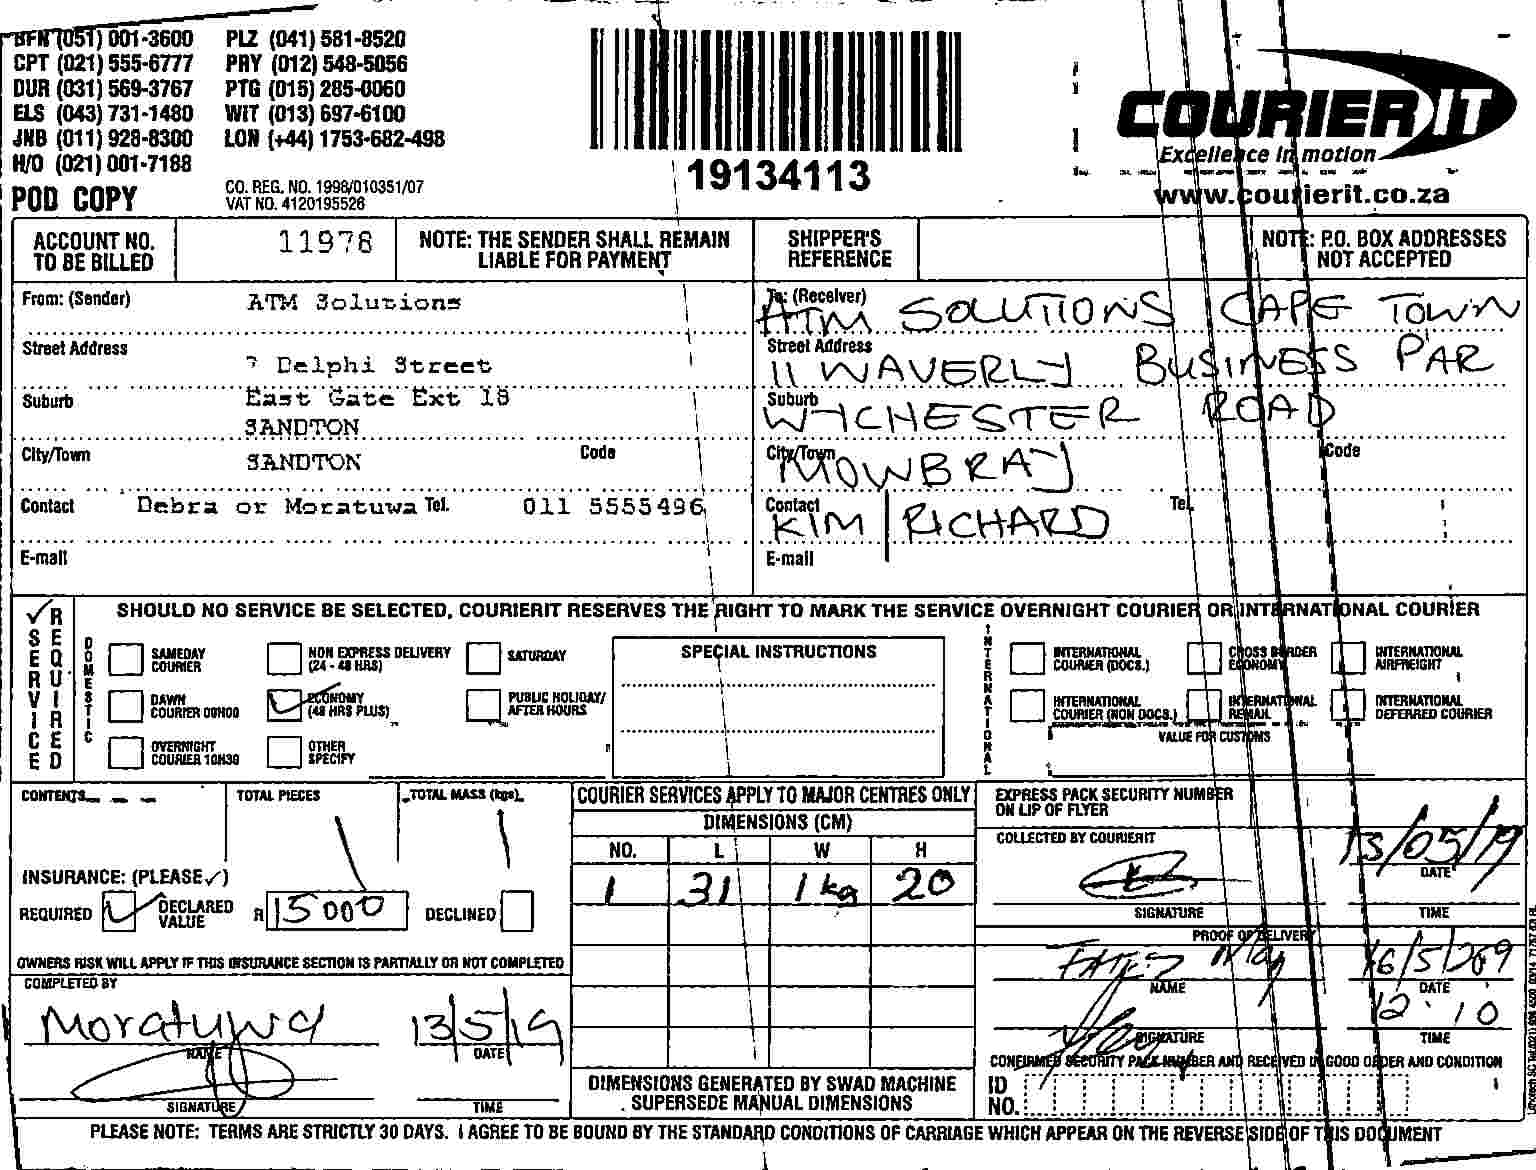 BFN (051) 001-3600 PLZ (041) 581-8520
CPT (021) 555-6777 PRY (012) 548-5056
DUR (031) 569-3767 PTG (015) 285-0060
ELS (043) 731-1480 WIT (013) 697-6100
JNB (011) 928-8300 LON (+44) 1753-682-498
H/O (021) 001-7188
POD COPY
CO. REG. NO. 1998/010351/07
VAT NO. 4120195526
19134113
COURIER IT
Excellence in motion
www.courierit.co.za
ACCOUNT NO. TO BE BILLED
11976
NOTE: THE SENDER SHALL REMAIN LIABLE FOR PAYMENT
SHIPPER'S REFERENCE
NOTE: P.O. BOX ADDRESSES NOT ACCEPTED
From: (Sender) ATM Solutions
Street Address 7 Delphi Street
Suburb East Gate Ext 18
SANDTON
City/Town SANDTON Code
Contact Debra or Moratuwa Tel. 011 5555496
E-mail
To: (Receiver)
ATM SOLUTIONS CAPE TOWN
Street Address
11 WAVERLY BUSINESS PAR
Suburb
WYCHESTER ROAD
City/Town Code
MOWBRAY
Contact Tel.
KIM / RICHARD
E-mail
SERVICE REQUIRED
SHOULD NO SERVICE BE SELECTED, COURIERIT RESERVES THE RIGHT TO MARK THE SERVICE OVERNIGHT COURIER OR INTERNATIONAL COURIER
DOMESTIC
SAMEDAY COURIER
NON EXPRESS DELIVERY (24 - 48 HRS)
SATURDAY
DAWN COURIER 09H00
ECONOMY (48 HRS PLUS)
PUBLIC HOLIDAY/ AFTER HOURS
OVERNIGHT COURIER 10H30
OTHER SPECIFY
SPECIAL INSTRUCTIONS
INTERNATIONAL
INTERNATIONAL COURIER (DOCS.)
CROSS BORDER ECONOMY
INTERNATIONAL AIRFREIGHT
INTERNATIONAL COURIER (NON DOCS.)
INTERNATIONAL REMAIL
INTERNATIONAL DEFERRED COURIER
VALUE FOR CUSTOMS
CONTENTS
TOTAL PIECES
TOTAL MASS (kgs)
1 1
INSURANCE: (PLEASE ✓)
REQUIRED ✓ DECLARED VALUE R 15000 DECLINED
OWNERS RISK WILL APPLY IF THIS INSURANCE SECTION IS PARTIALLY OR NOT COMPLETED
COMPLETED BY
Moratuwa 13/5/19
NAME DATE
SIGNATURE TIME
COURIER SERVICES APPLY TO MAJOR CENTRES ONLY
DIMENSIONS (CM)
NO. L W H
1 31 1kg 20
DIMENSIONS GENERATED BY SWAD MACHINE SUPERSEDE MANUAL DIMENSIONS
EXPRESS PACK SECURITY NUMBER ON LIP OF FLYER
COLLECTED BY COURIERIT
13/05/19
DATE
SIGNATURE TIME
PROOF OF DELIVERY
16/5/209
NAME DATE
12.10
SIGNATURE TIME
CONFIRMED SECURITY PACK NUMBER AND RECEIVED IN GOOD ORDER AND CONDITION
ID NO.
PLEASE NOTE: TERMS ARE STRICTLY 30 DAYS. I AGREE TO BE BOUND BY THE STANDARD CONDITIONS OF CARRIAGE WHICH APPEAR ON THE REVERSE SIDE OF THIS DOCUMENT